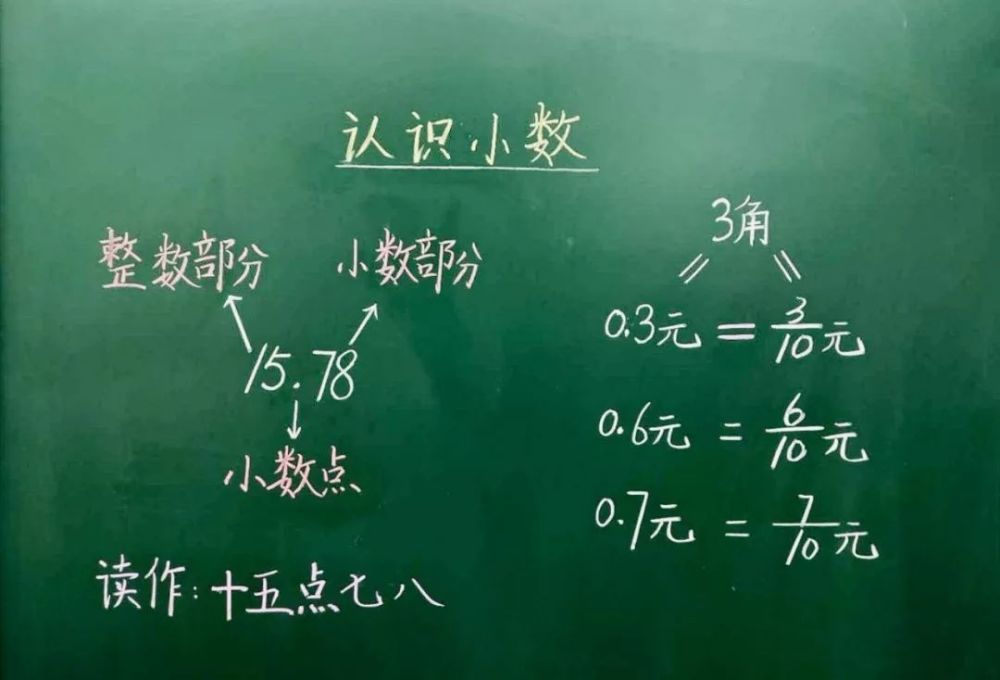 认识小数
整数部分 小数部分
15.78
小数点
读作:十五点七八
3角
0.3元 = 3/10元
0.6元 = 6/10元
0.7元 = 7/10元